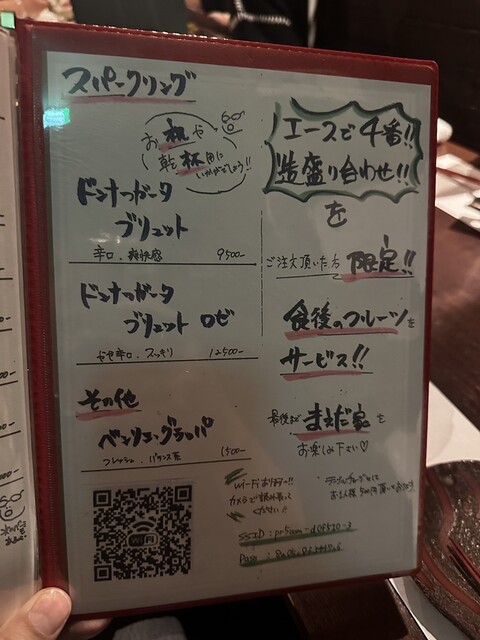 スパークリング
お祝や
乾杯用に
いかがでしょう!!
ドンナフガータ
ブリュット
辛口. 爽快感 9500-
ドンナフガータ
ブリュット ロゼ
やや辛口. スッキリ 12500-
その他
フレッシュ. バランス系 1500-
WiFi
エースで4番!!
造盛り合わせ!!
を
ご注文頂いた方 限定!!
食後のフルーツを
サービス!!
最後まで まえだ家 を
お楽しみ下さい♡
Wi-Fiあります!!
カメラで読み取って
ください
SSID:
Pass: